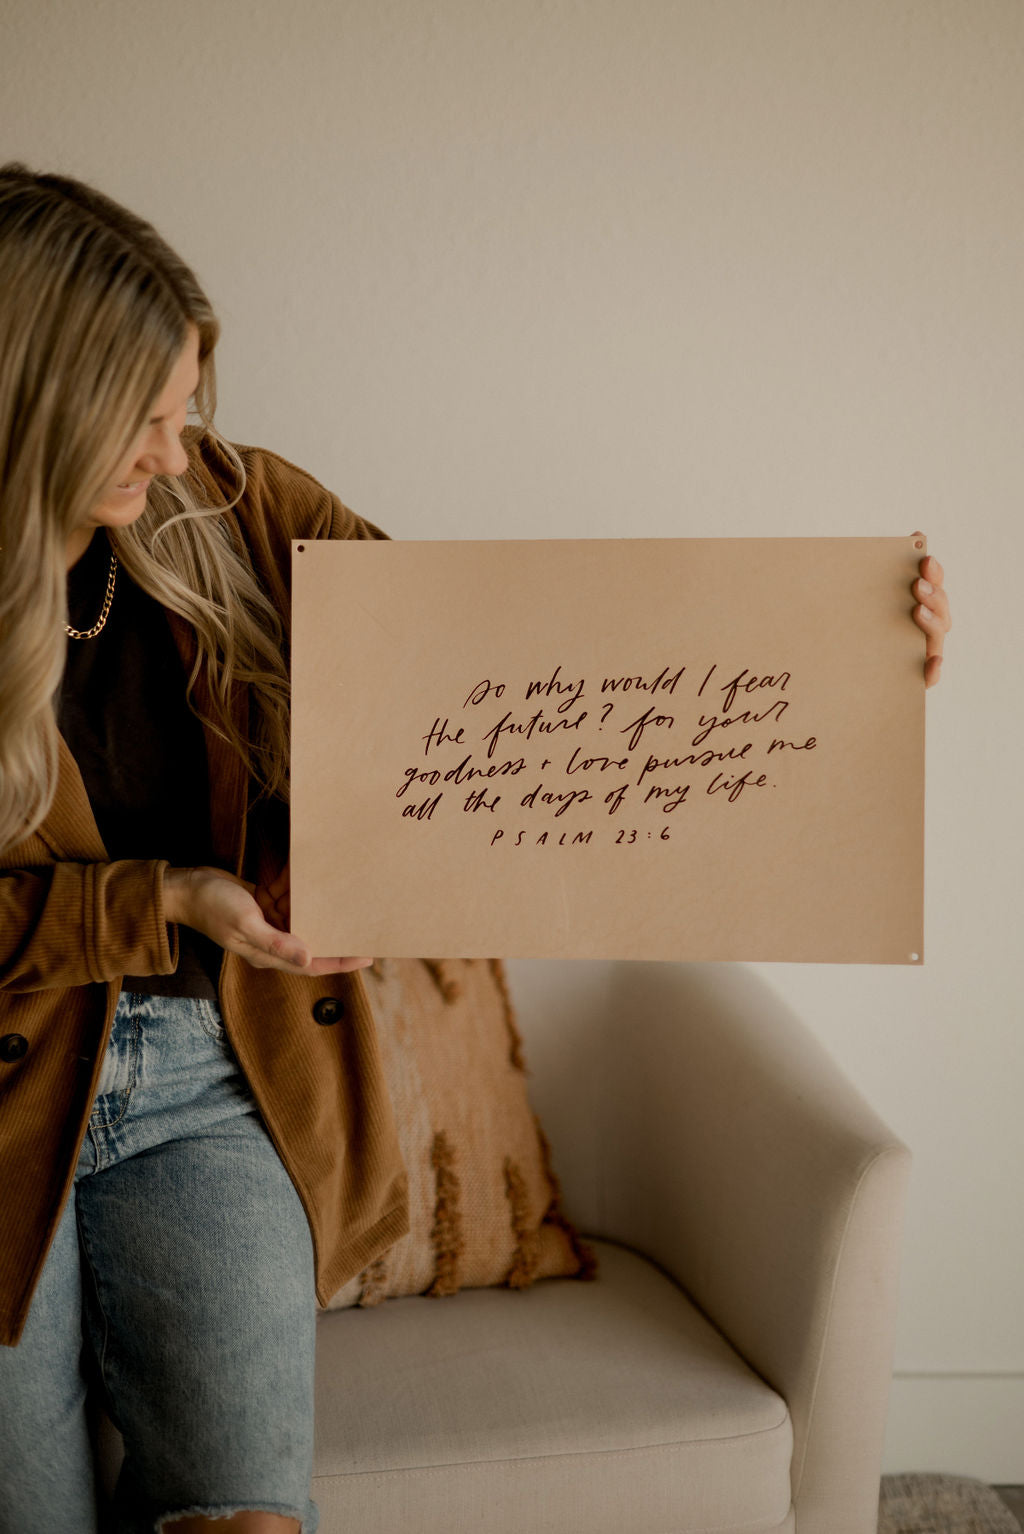 so why would I fear
the future? for your
goodness + love pursue me
all the days of my life.
PSALM 23:6